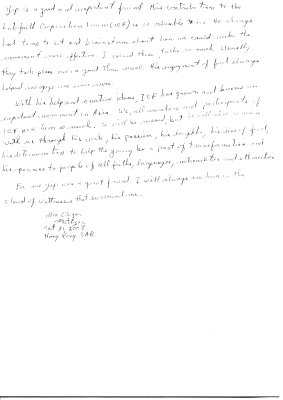 Yap is a good and important friend. His contribution to the
Interfaith Cooperation Forum (ICF) is so valuable to me. He always
had time to sit and brainstorm about how we could make the
movement more effective. I valued these talks so much. Usually
they took place over a good Thai meal. His enjoyment of food always
helped me enjoy
With his help and creative ideas, ICF has grown and become an
important movement in Asia. We, all members and participants of
ICF owe him so much. He will be missed, but he will also remain
with us through his work, his passion, his laughter, his love of food,
his determination to help the young be a part of transformation and
his openness to people of all faiths, languages, nationalities and ethnicities.
For me Yap was a great friend. I will always see him in the
cloud of witnesses that surround me.
Max Ediger
Oct 31, 2007
Hong Kong SAR